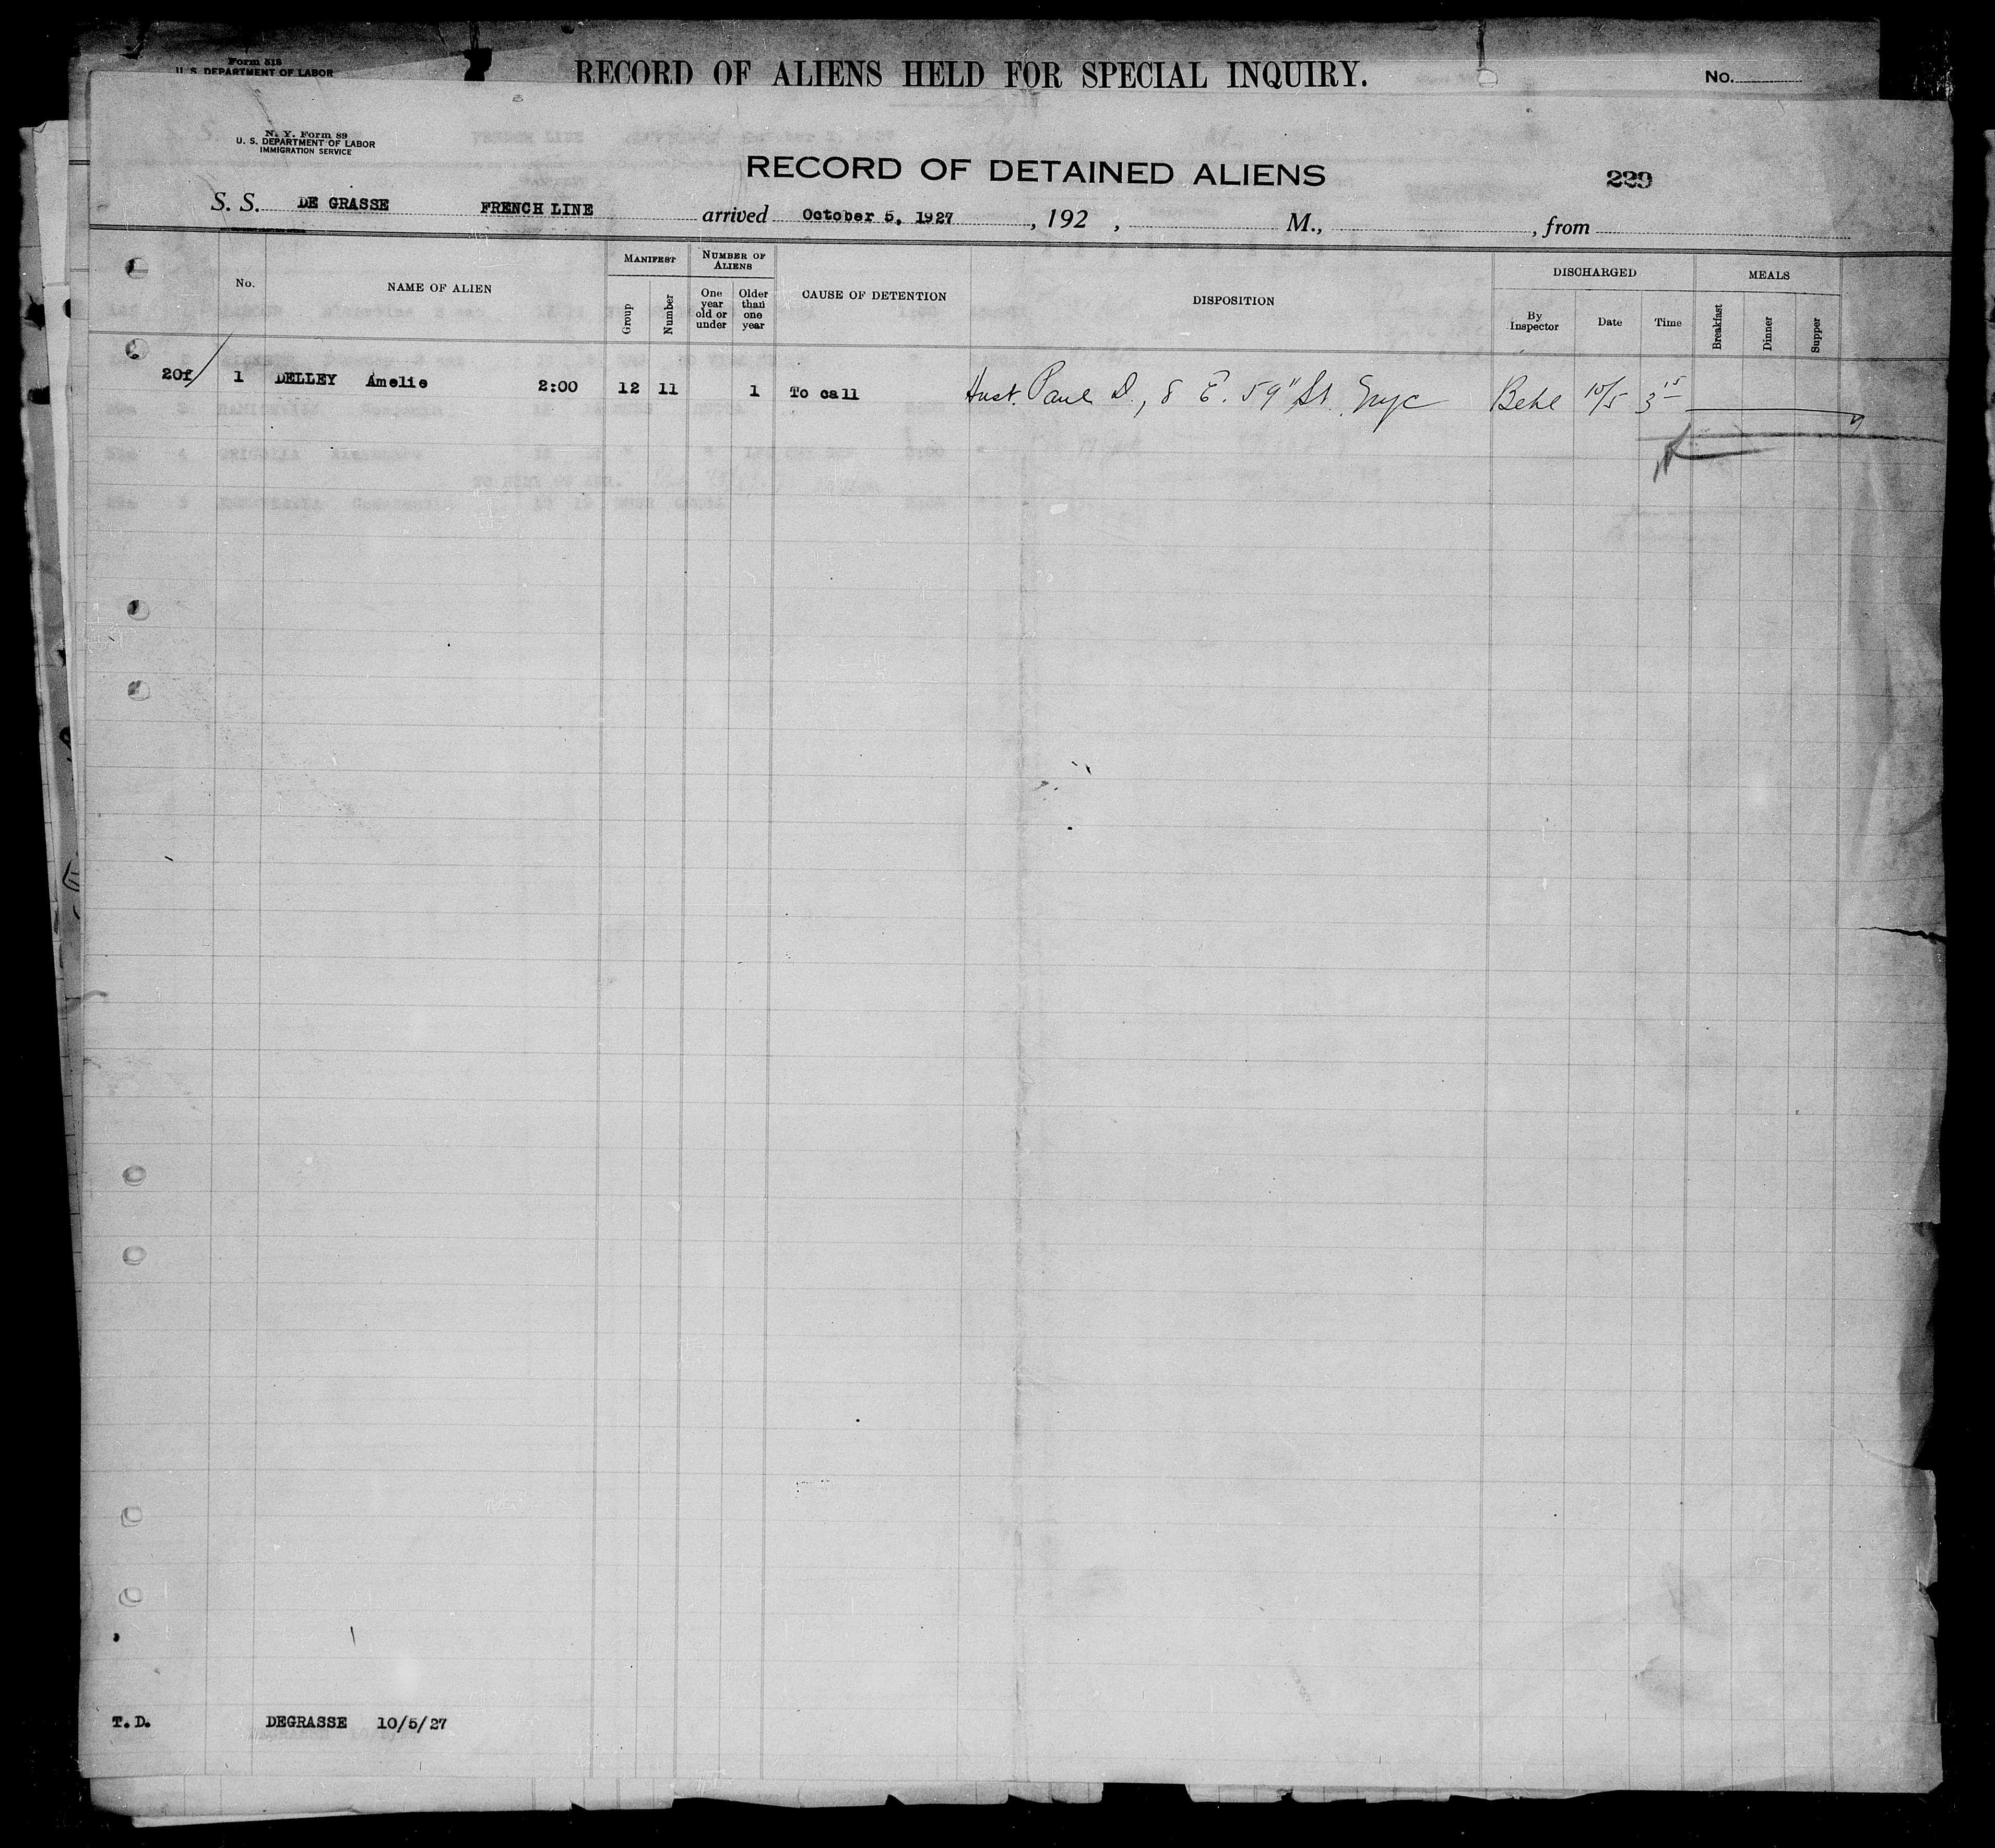 Form 518
U. S. DEPARTMENT OF LABOR
RECORD OF ALIENS HELD FOR SPECIAL INQUIRY.
No.
N. Y. Form 89
U. S. DEPARTMENT OF LABOR
IMMIGRATION SERVICE
RECORD OF DETAINED ALIENS
229
S. S. DE GRASSE FRENCH LINE arrived October 5, 1927, 192 , M., , from
No.
NAME OF ALIEN
MANIFEST
Group
Number
NUMBER OF ALIENS
One year old or under
Older than one year
CAUSE OF DETENTION
DISPOSITION
DISCHARGED
By Inspector
Date
Time
MEALS
Breakfast
Dinner
Supper
20f 1 DELLEY Amelie 2:00 12 11 1 To call Husb. Paul D., 8 E. 59" St. Nyc 10/5 3 15
T.D. DEGRASSE 10/5/27